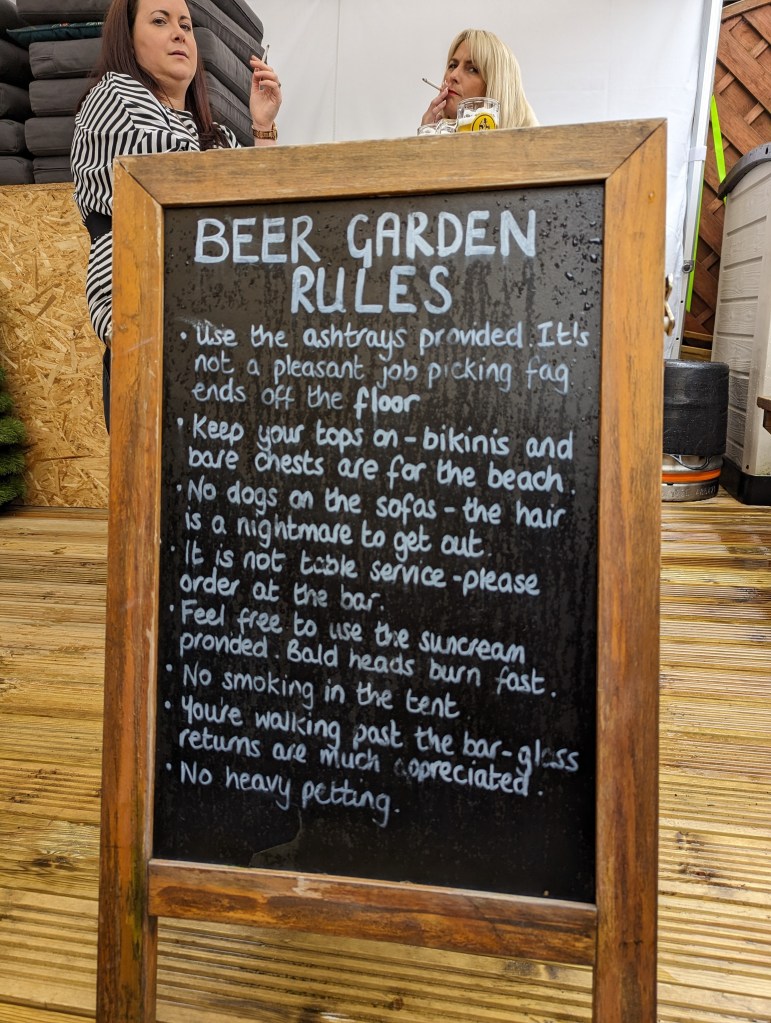 BEER GARDEN
RULES
• Use the ashtrays provided. It's
not a pleasant job picking fag
ends off the floor
• Keep your tops on - bikinis and
bare chests are for the beach.
• No dogs on the sofas - the hair
is a nightmare to get out.
• It is not table service - please
order at the bar.
• Feel free to use the suncream
provided. Bald heads burn fast.
• No smoking in the tent
• You're walking past the bar - glass
returns are much appreciated.
• No heavy petting.